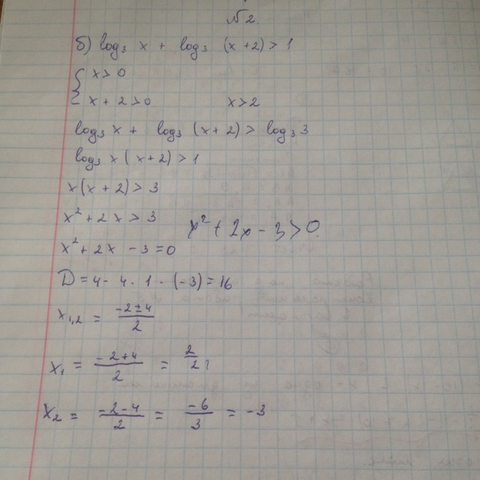 №2.
б) log₃ x + log₃ (x+2) > 1
{ x > 0
x + 2 > 0 x > 2
log₃ x + log₃ (x+2) > log₃ 3
log₃ x (x+2) > 1
x (x+2) > 3
x² + 2x > 3 x² + 2x - 3 > 0
x² + 2x - 3 = 0
D = 4 - 4 · 1 · (-3) = 16
x₁,₂ = (-2 ± 4)/2
x₁ = (-2+4)/2 = 2/2
x₂ = (-2-4)/2 = -6/3 = -3